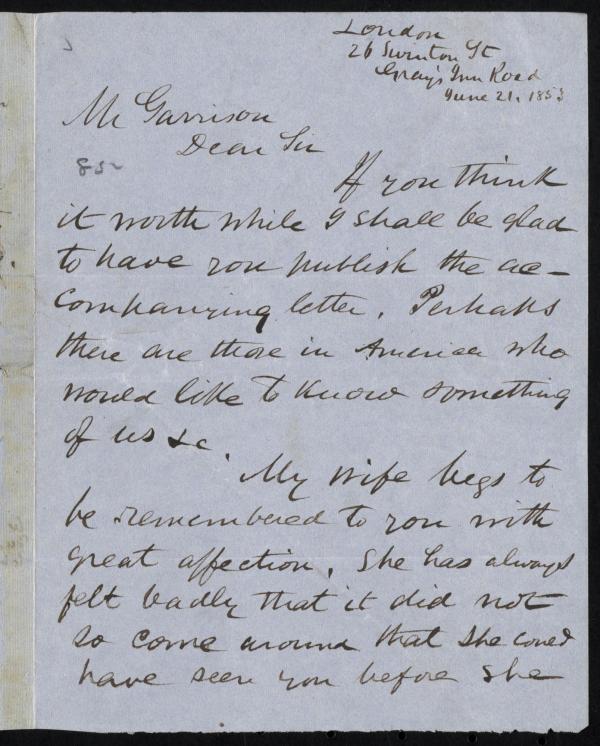 London
26 Swinton St
Grays Inn Road
June 21, 1853
Mr Garrison
Dear Sir
852
If you think
it worth while I shall be glad
to have you publish the ac-
companying letter. Perhaps
there are those in America who
would like to know something
of us &c.
My wife begs to
be remembered to you with
great affection. She has always
felt badly that it did not
so come around that she could
have seen you before she